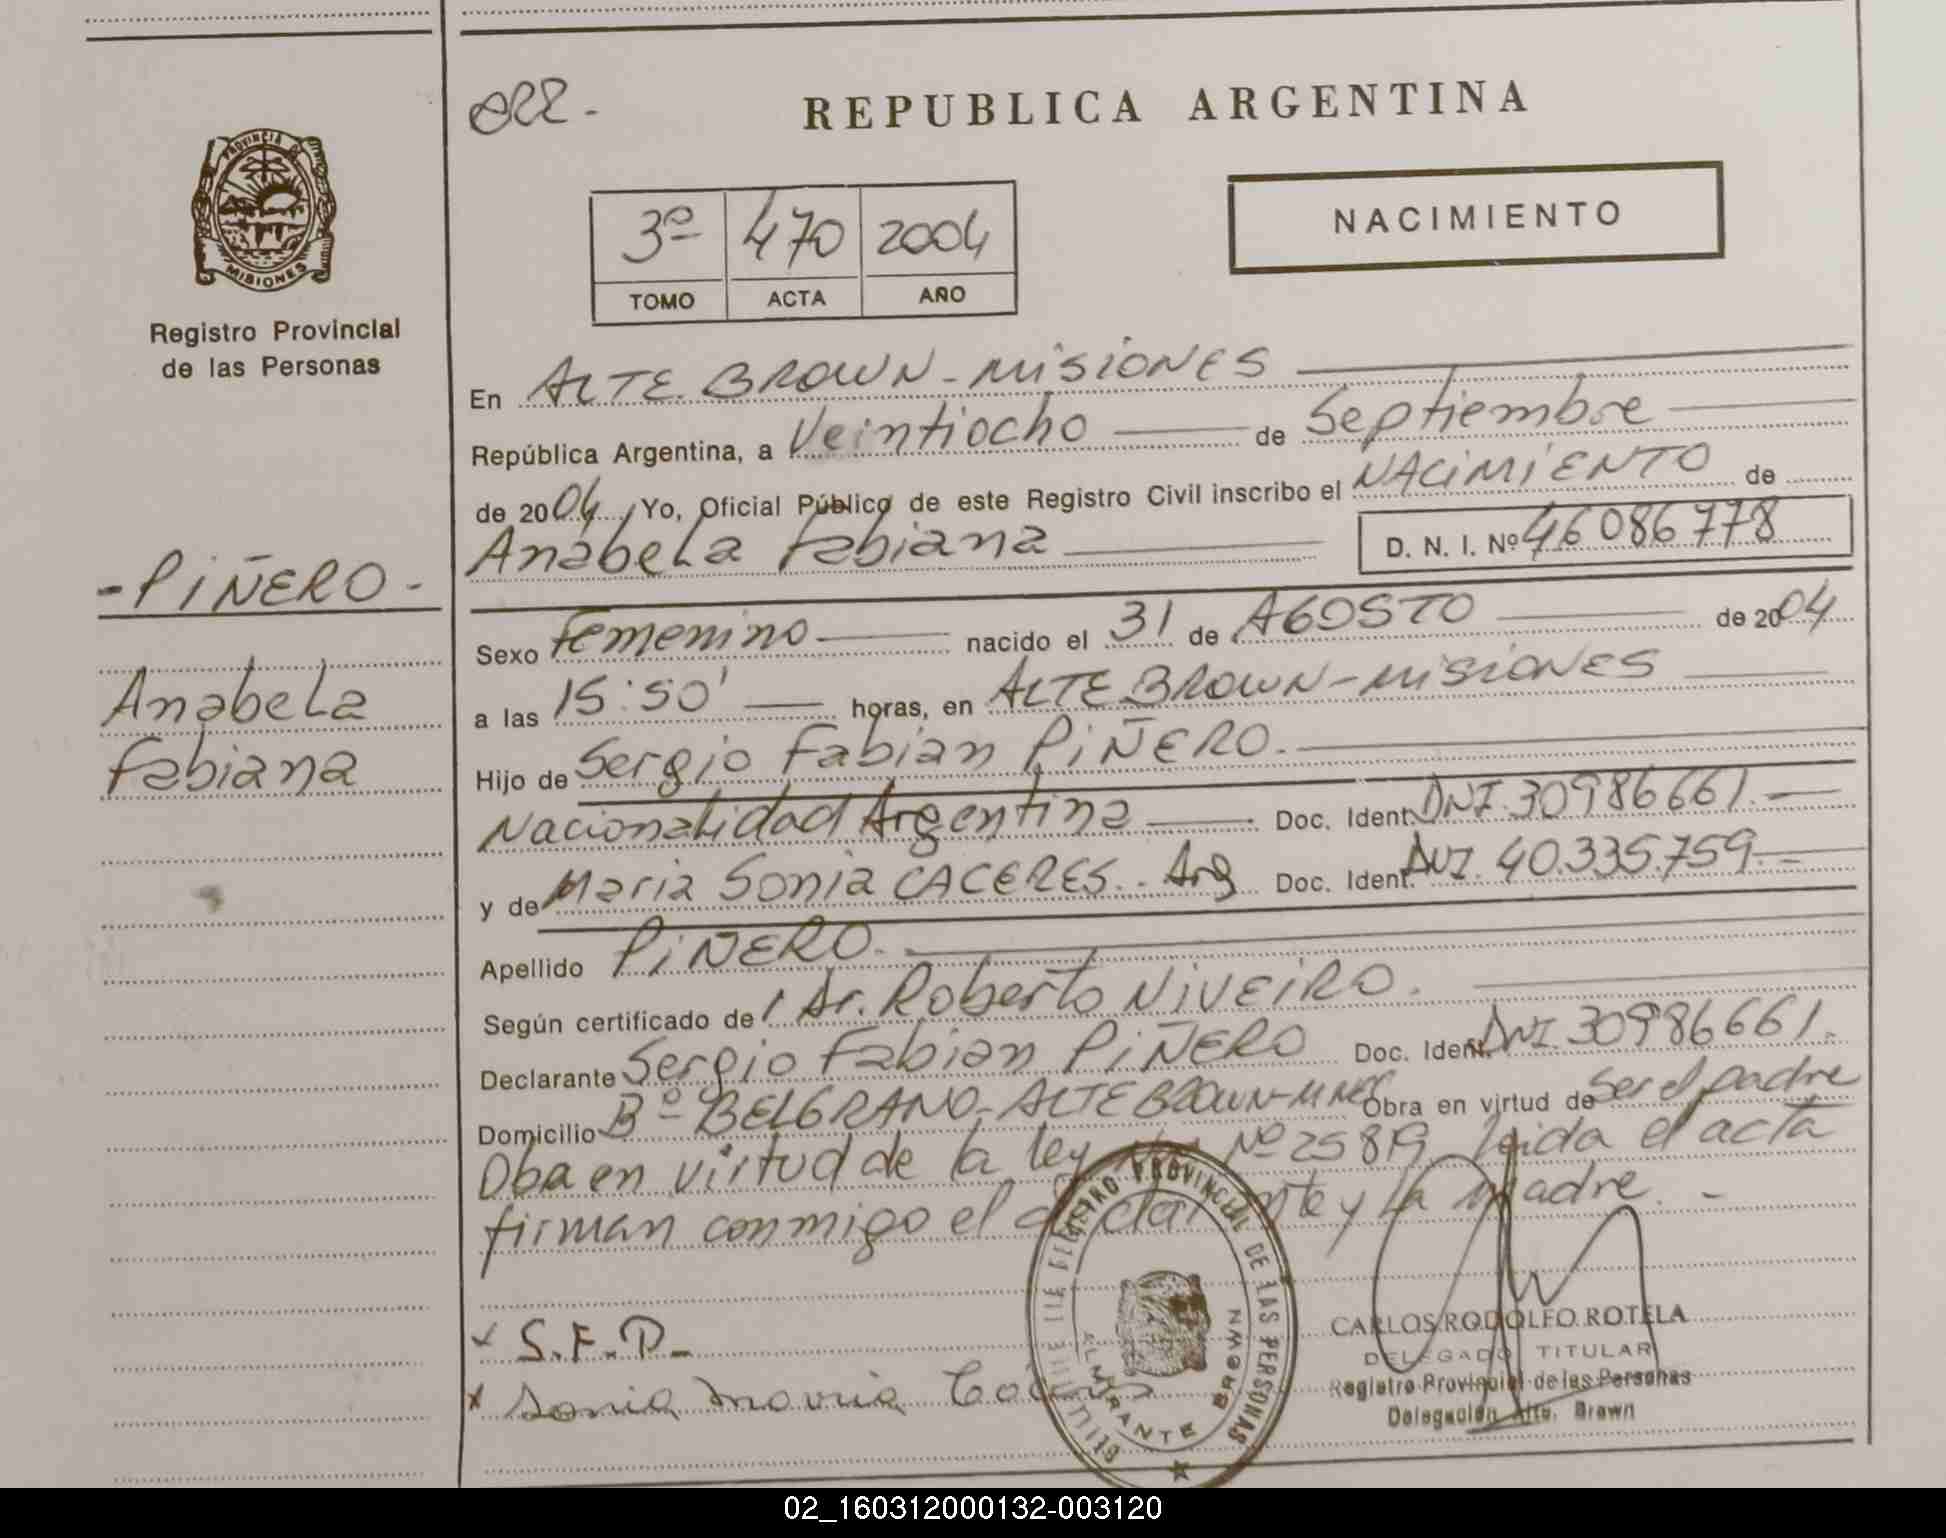 PROVINCIA DE
MISIONES
Registro Provincial
de las Personas
- PIÑERO -
Anabela
Fabiana
022.-
REPUBLICA ARGENTINA
3º 470 2004
TOMO ACTA AÑO
NACIMIENTO
En ALTE. BROWN - MISIONES
República Argentina, a Veintiocho de Septiembre
de 2004 Yo, Oficial Público de este Registro Civil inscribo el NACIMIENTO de
Anabela Fabiana D. N. I. Nº 46086778
Sexo Femenino nacido el 31 de AGOSTO de 2004
a las 15:50' horas, en ALTE BROWN - MISIONES
Hijo de Sergio Fabian PIÑERO.
Nacionalidad Argentina Doc. Ident. DNI. 30986661.-
y de Maria Sonia CACERES.. Arg Doc. Ident. DNI. 40.335.759.-
Apellido PIÑERO.
Según certificado de Dr. Roberto NIVEIRO.
Declarante Sergio Fabian PIÑERO Doc. Ident. DNI 30986661.
Domicilio Bº BELGRANO - ALTE BROWN - Mnes Obra en virtud de Ser el padre
Oba en virtud de la ley Nº 25819 leida el acta
firman conmigo el declarante y la madre. -
x S.F.P.
x Sonia Maria
REGISTRO PROVINCIAL DE LAS PERSONAS
ALMIRANTE BROWN
CARLOS RODOLFO ROTELA
DELEGADO TITULAR
Registro Provincial de las Personas
Delegación Alte. Brown
02_160312000132-003120